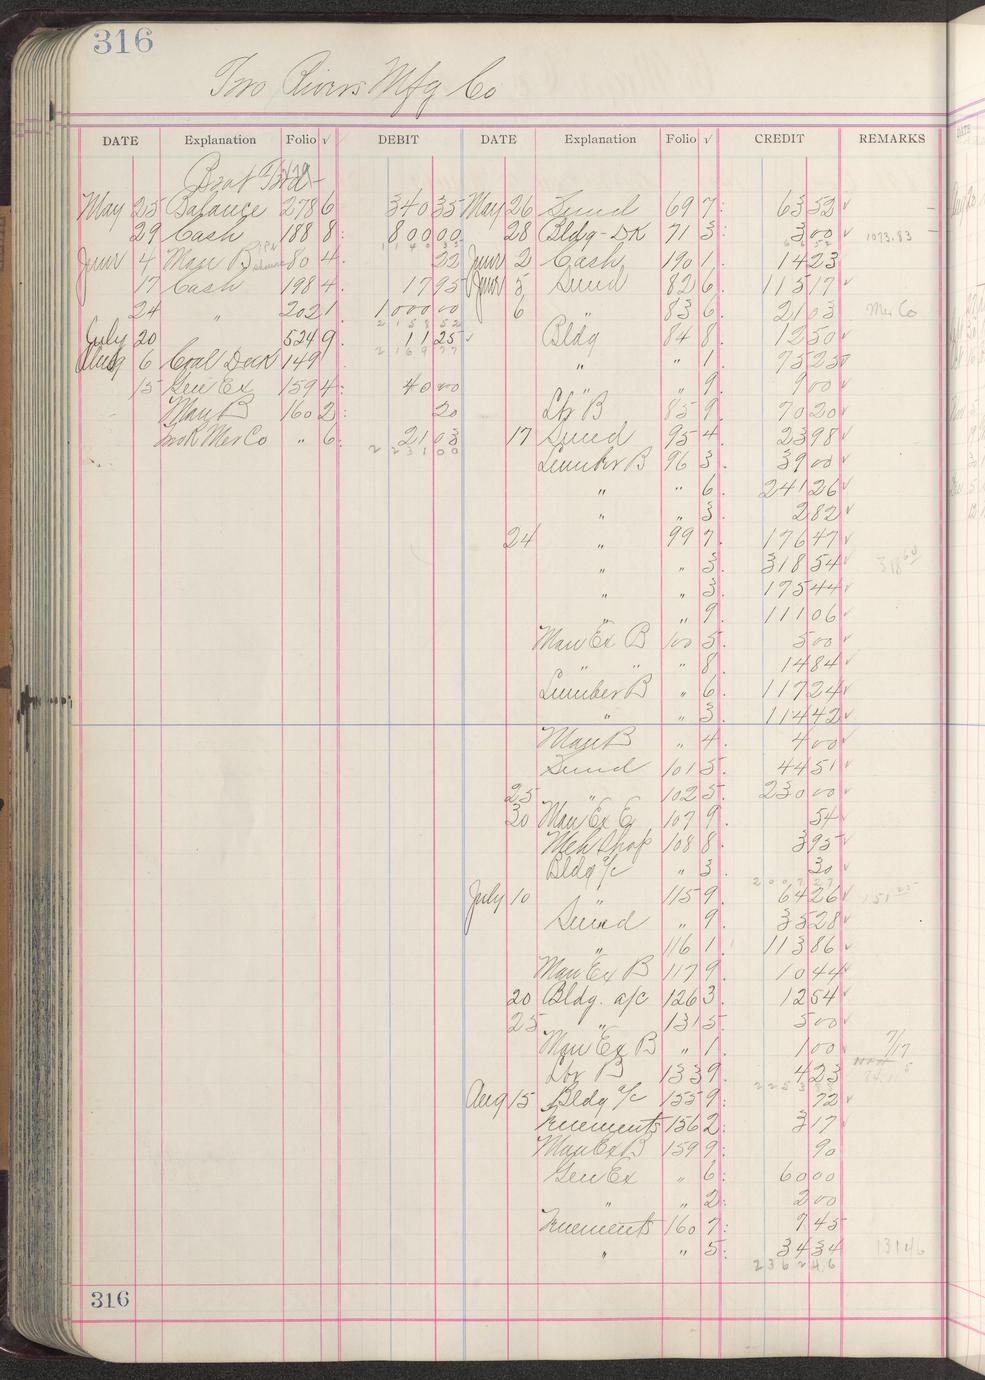 316
Two Rivers Mfg Co
DATE Explanation Folio √ DEBIT DATE Explanation Folio √ CREDIT REMARKS
Brot Ford
May 25 Balance 278 6 340 35 May 26 Sund 69 7 63 52 √
29 Cash 188 8 800 00 28 Bldg-DK 71 3 3 00 √ 1073.83
June 4 Man B 80 4 22 June 2 Cash 190 1 14 23
17 Cash 198 4 17 95 June 5 Sund 82 6 115 17 √
24 " 202 1 1000 00 6 " 83 6 21 03 Mer Co
2158 52
July 20 524 9 11 25 √ Bldg 84 8 12 50 √
2169 77
Aug 6 Coal Dock 149 " " 1 75 25 √
15 Gen Ex 159 4 40 00 " " 9 9 00 √
Man B 160 2 20 Lbr B 85 9 70 20 √
Mer Co " 6 21 03 17 Sund 95 4 23 98 √
2231 00
Lumber B 96 3 39 00 √
" " 6 241 26 √
" " 3 2 82 √
24 " 99 7 176 47 √
" " 3 318 54 √ 318 60
" " 3 175 44 √
" " 9 111 06 √
Man Ex B 100 5 5 00 √
" " " 8 14 84 √
Lumber B " 6 117 24 √
" " 3 114 42 √
Man B " 4 4 00 √
Sund 101 5 44 51 √
25 " 102 5 230 00 √
30 Man Ex E 107 9 54 √
Meh Shop 108 8 3 95 √
Bldg a/c " 3 30 √
July 10 " 115 9 64 26 √
Sund " 9 35 28 √
" 116 1 113 86 √
Man Ex B 117 9 10 44 √
20 Bldg. a/c 126 3 12 54 √
25 " 131 5 5 00 √
Man Ex B " 1 1 00 √ 7/17
Lbr B 133 9 4 23
Aug 15 Bldg a/c 155 9 72 √
156 2 3 17 √
Man Ex B 159 9 90
Gen Ex " 6 60 00
" " 2 2 00
160 7 7 45
" " 5 34 34 131 46
2362 46
316